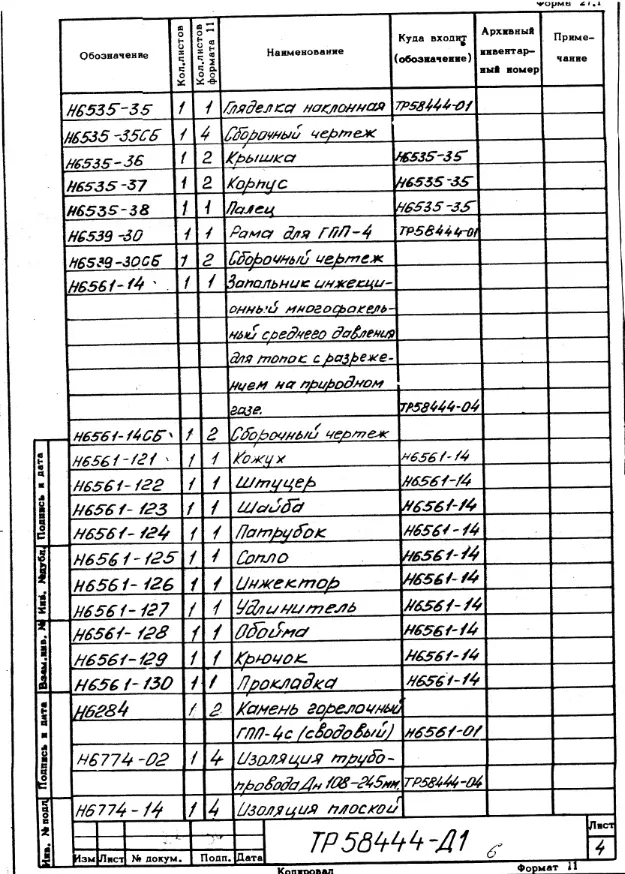 Форма 27.1
Обозначение | Кол.листов | Кол.листов формата 11 | Наименование | Куда входит (обозначение) | Архивный инвентар- ный номер | Приме- чание
Н6535-35 1 1 Гляделка наклонная ТР58444-01
Н6535-35СБ 1 4 Сборочный чертеж
Н6535-36 1 2 Крышка Н6535-35
Н6535-37 1 2 Корпус Н6535-35
Н6535-38 1 1 Палец Н6535-35
Н6539-30 1 1 Рама для ГПП-4 ТР58444-01
Н6539-30СБ 1 2 Сборочный чертеж
Н6561-14 1 1 Запальник инжекци-
онный многофакель-
ный среднего давления
для топок с разреже-
нием на природном
газе. ТР58444-04
Н6561-14СБ 1 2 Сборочный чертеж
Н6561-121 1 1 Кожух Н6561-14
Н6561-122 1 1 Штуцер Н6561-14
Н6561-123 1 1 Шайба Н6561-14
Н6561-124 1 1 Патрубок Н6561-14
Н6561-125 1 1 Сопло Н6561-14
Н6561-126 1 1 Инжектор Н6561-14
Н6561-127 1 1 Удлинитель Н6561-14
Н6561-128 1 1 Обойма Н6561-14
Н6561-129 1 1 Крючок Н6561-14
Н6561-130 1 1 Прокладка Н6561-14
Н6284 1 2 Камень горелочный
ГПП-4с (сводовый) Н6561-01
Н6774-02 1 4 Изоляция трубо-
провода Дн 108-245мм ТР58444-04
Н6774-14 1 4 Изоляция плоской
Инв. № подл. Подпись и дата Взам.инв. № Инв. №дубл. Подпись и дата
ТР58444-Д1 6
Лист
4
Изм Лист № докум. Подп. Дата
Копировал Формат 11